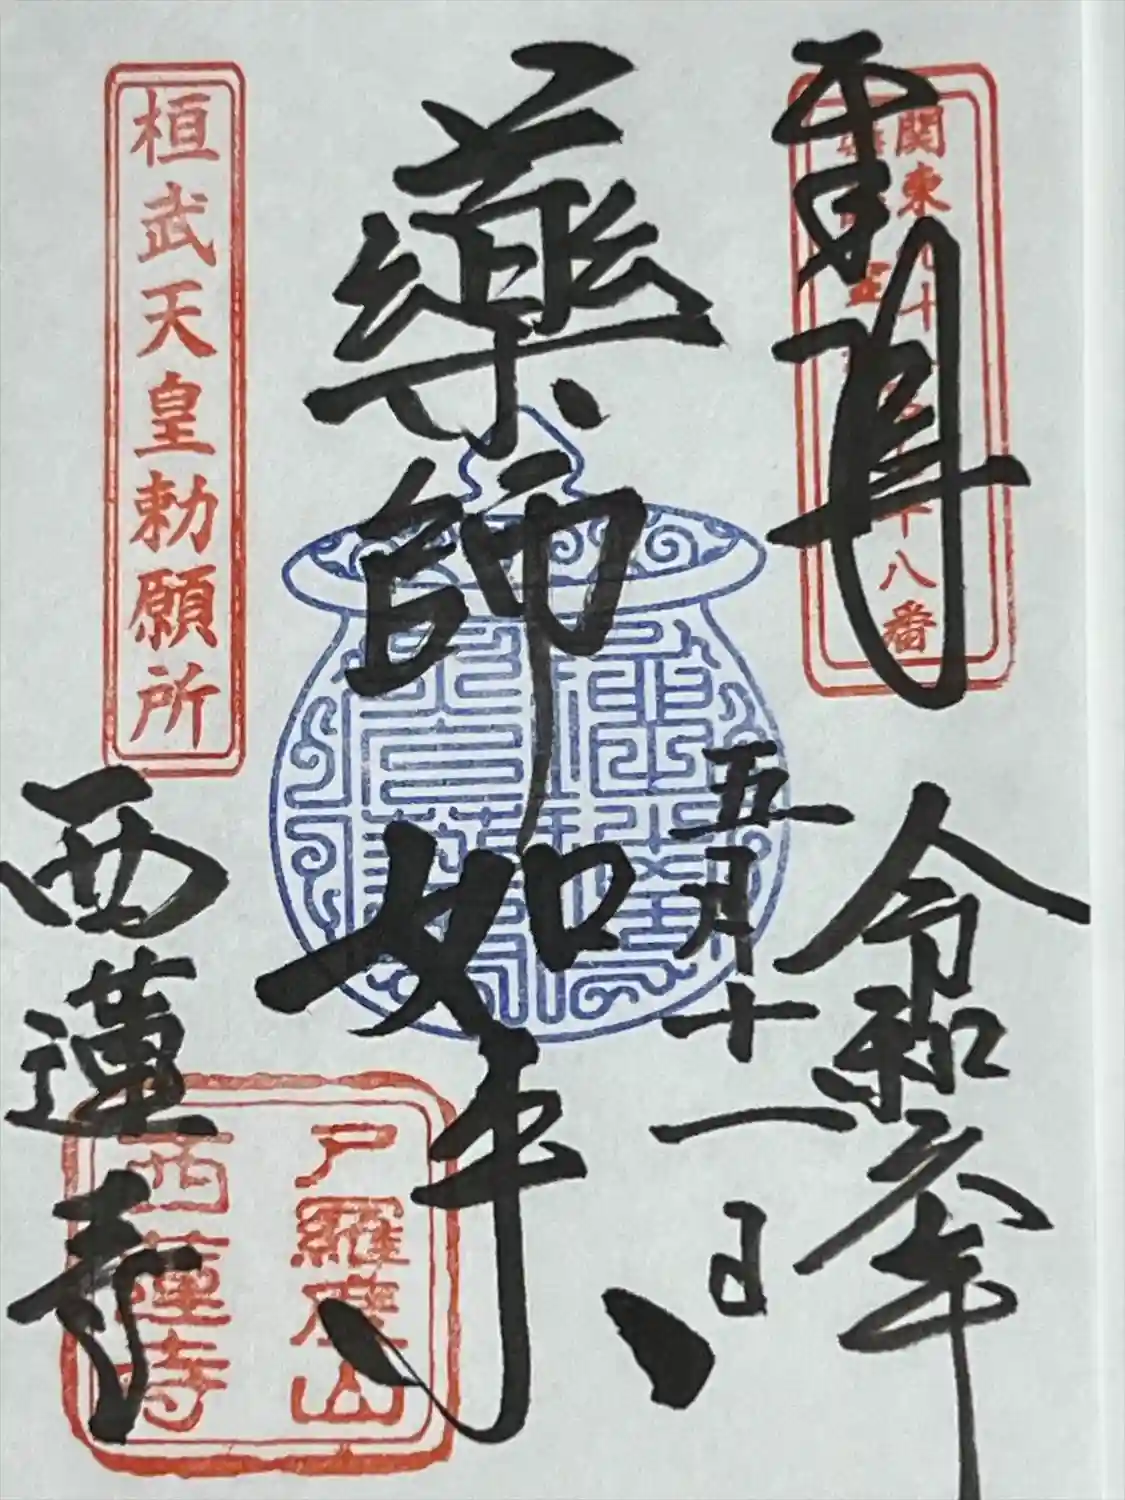 奉拝
関東
十八番
令和六年
五月十一日
藥師如来
桓武天皇勅願所
西蓮寺
尸羅度山
西蓮寺